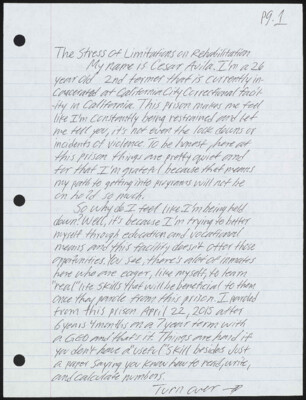 pg. 1
The Stress of Limitations on Rehabilitation
My name is Cesar Avila. I'm a 26
year old 2nd termer that is currently in-
carcerated at California City Correctional Facil-
ity in California. This prison makes me feel
like I'm constantly being restrained and let
me tell you, it's not even the lock downs or
incidents of violence. To be honest, here at
this prison things are pretty quiet and
for that I'm grateful because that means
my path to getting into programs will not be
on hold so much.
So why do I feel like I'm being held
down? Well, it's because I'm trying to better
myself through education and vocational
means and this facility doesn't offer those
opportunities. You see, there's a lot of inmates
here who are eager, like myself, to learn
"real" life skills that will be beneficial to them
once they parole from this prison. I paroled
from this prison April 22, 2015 after
6 years 4 months on a 7 year term with
a GED and that's it. Things are hard if
you don't have a "useful" skill besides just
a paper saying you know how to read, write,
and calculate numbers.
Turn over →